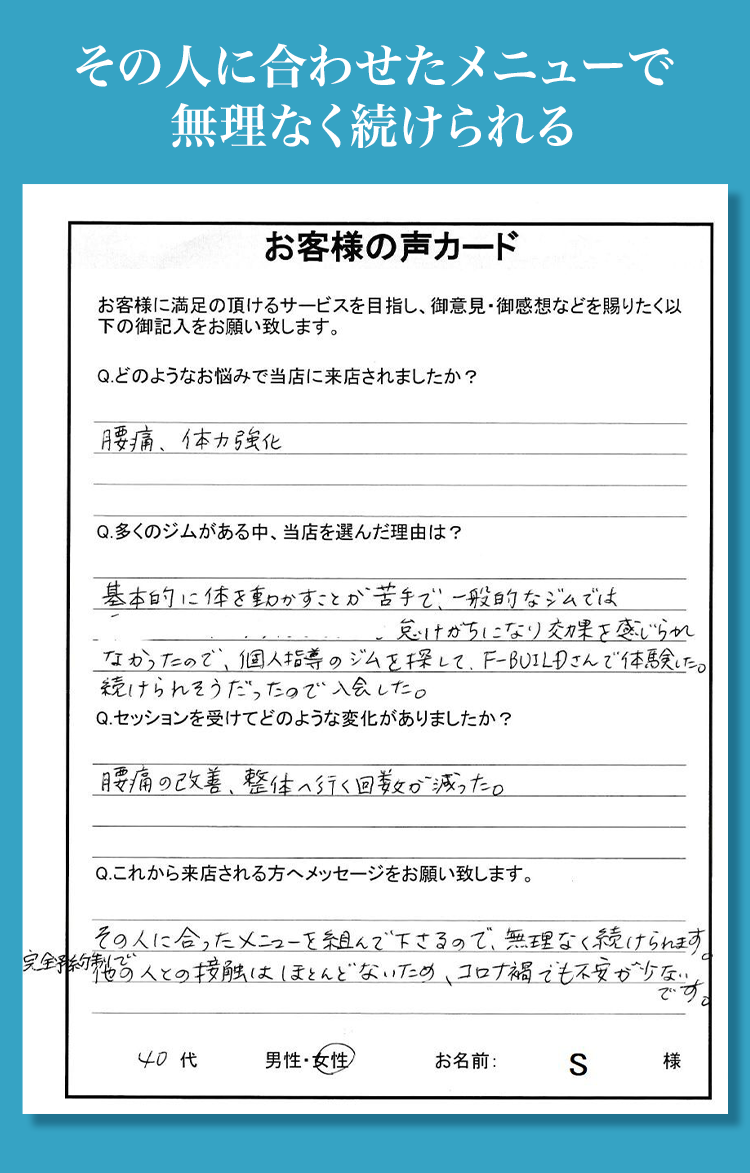 その人に合わせたメニューで
無理なく続けられる
お客様の声カード
お客様に満足の頂けるサービスを目指し、御意見・御感想などを賜りたく以
下の御記入をお願い致します。
Q.どのようなお悩みで当店に来店されましたか？
腰痛、体力強化
Q.多くのジムがある中、当店を選んだ理由は？
基本的に体を動かすことが苦手で、一般的なジムでは
怠けがちになり効果を感じられ
なかったので、個人指導のジムを探して、F-BUILDさんで体験した。
続けられそうだったので入会した。
Q.セッションを受けてどのような変化がありましたか？
腰痛の改善、整体へ行く回数が減った。
Q.これから来店される方へメッセージをお願い致します。
その人に合ったメニューを組んで下さるので、無理なく続けられます。
完全予約制で
他の人との接触はほとんどないため、コロナ禍でも不安が少ない
です。
40代 男性・女性 お名前： S 様